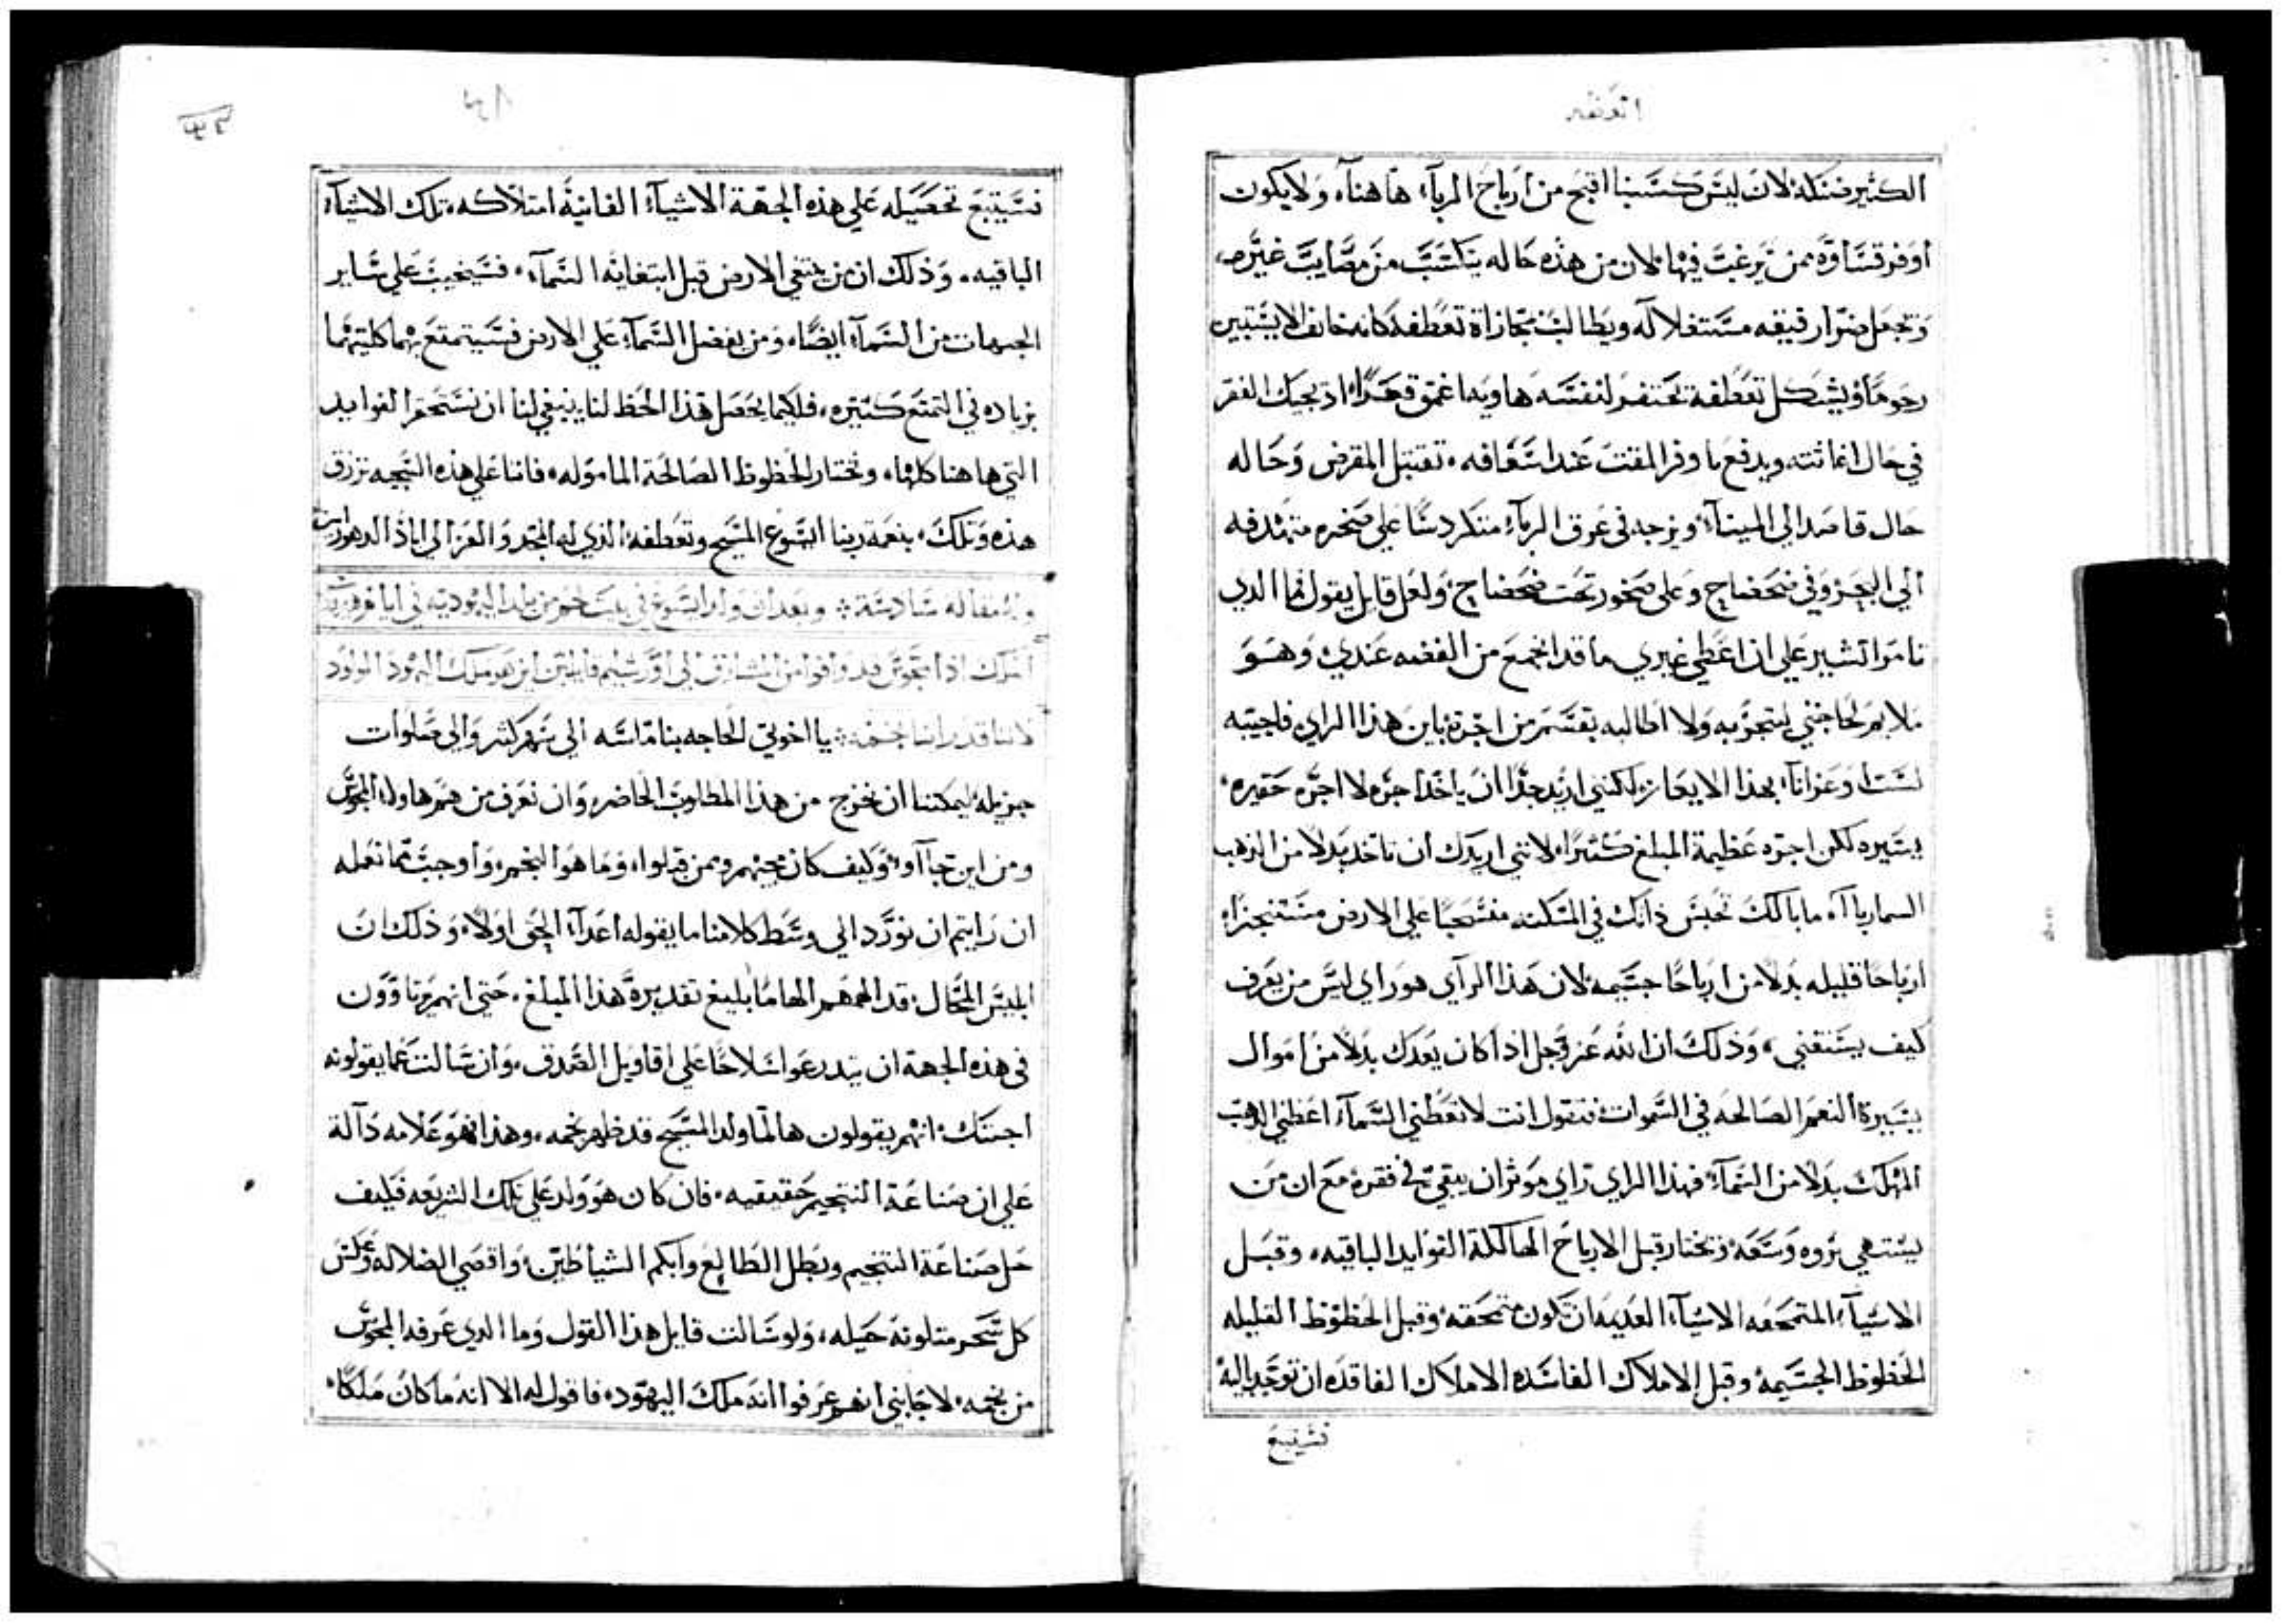 الكثير فتنكله لان ليس كسبنا اقبح من ارباح الرباء هاهناء ولا يكون
اوفر قساوه ممن يرغب فيها لان من هذه حاله يتكسب من مصايب غيره
وتجعل ضرار فيقه مستغلا له ويطالب بمجازاة تعطفه كانه خايف الا يستبين
رحوما ويشكل تعطفه تحتفر لنفسه هاويه اعمق قدرا اذ يجيك الفقر
في حال اغاثته ويدفع ما وفر المقت عند اسعافه تقتبل المقرض وحاله
حال قاصد الي الميناء ويزجه في غرق الرباء متكردسا علي صخره متهدفه
الي البحر وفي ضحضاح وعلي صخور تحت ضحضاح ولعل قايل يقول فما الذي
تامر اتشير علي ان اعطي غيري ما قد اجتمع من الفضه عندي وهو
ملايم لحاجتي ليتجر به ولا اطالبه بقسم من اجرة باين هذا الراي فاجيبه
لست اوعز انا بهذا الايعاز لكنني اريد جدا ان ياخذ اجره لا اجره حقيره
يسيره لكن اجره عظيمة المبلغ كثيرا لانني اريدك ان تاخذ بدلا من الذهب
السما ربا اه ما بالك تحبس ذاتك في المسكنه منسحبا علي الارض مستنجزا
ارباحا قليله بدلا من ارباحا جسيمه لان هذا الراي هو راي ليس من يعرف
كيف يستغني وذلك ان الله عز وجل اذا كان يعدك بدلا من اموال
يسيرة النعم الصالحه في السموات فتقول انت لا تعطني السماء اعطني الذهب
المهلك بدلا من السماء فهذا الراي راي موثر ان يبقي في فقره مع ان من
يشتهي ثروه وسعه يختار قبل الارباح الهالكة الفوايد الباقيه وقبل
الاشياء المتمحقه الاشياء العديمه ان تكون متمحقه وقبل الحظوظ القليله
الحظوظ الجسيمة وقبل الاملاك الفاسده الاملاك الفاقده ان توجد باليه
فسيتبع
فسيتبع تحصيله علي هذه الجهة الاشياء الفانية امتلاكه تلك الاشياء
الباقيه وذلك ان من يبتغي الارض قبل ابتغايه السماء فسيخيب علي ساير
الجهات من السماء ايضا ومن يفضل السماء علي الارض فسيتمتع بهما كلتيهما
بزياده في التمتع كثيره فلكيما يحصل هذا الحظ لنا ينبغي لنا ان نستحقر الفوايد
التي هاهنا كلها ونختار الحظوظ الصالحة المامولة فاننا علي هذه الجهه نرزق
هذه وتلك بنعمة ربنا ايسوع المسيح وتعطفه الذي له المجد والعز الي اباد الدهور امين
مقاله سادسة وبعد ان ولد ايسوع في بيت لحم من بلد اليهوديه في ايام هيرودس
الملك اذا مجوس قد وافوا من المشارق الي اورشليم قايلين اين هو ملك اليهود المولود
لاننا قد راينا نجمه يا اخوتي الحاجه بنا ماسه الي سهر كثير والي صلوات
جزيله ليمكننا ان نخرج من هذا المطلوب الحاضر وان نعرف من هم هاولاء المجوس
ومن اين جاآوا وكيف كان مجيهم وممن قبلوا وما هو النجم واوجب مما نعمله
ان رايتم ان نورد الي وسط كلامنا ما يقوله اعداء الحق اولا وذلك ان
ابليس المحال قد الهمهم الهاما بليغ تقديره هذا المبلغ حتي انهم يرتاوون
في هذه الجهة ان يتدرعوا سلاحا علي اقاويل الصدق وان سالت عما يقولونه
اجبتك انهم يقولون ها لما ولد المسيح قد ظهر نجمه وهذا فهو علامه دالة
علي ان صناعة التنجيم حقيقيه فان كان هو ولد علي تلك الشريعه فكيف
حل صناعة التنجيم وبطل الطالع وابكم الشياطين واقصي الضلاله وعكس
كل سحر متلونة حيله ولو سالت قايل هذا القول وما الذي عرفه المجوس
من نجمه لاجابني انهم عرفوا انه ملك اليهود فاقول له الا انه ما كان ملكا